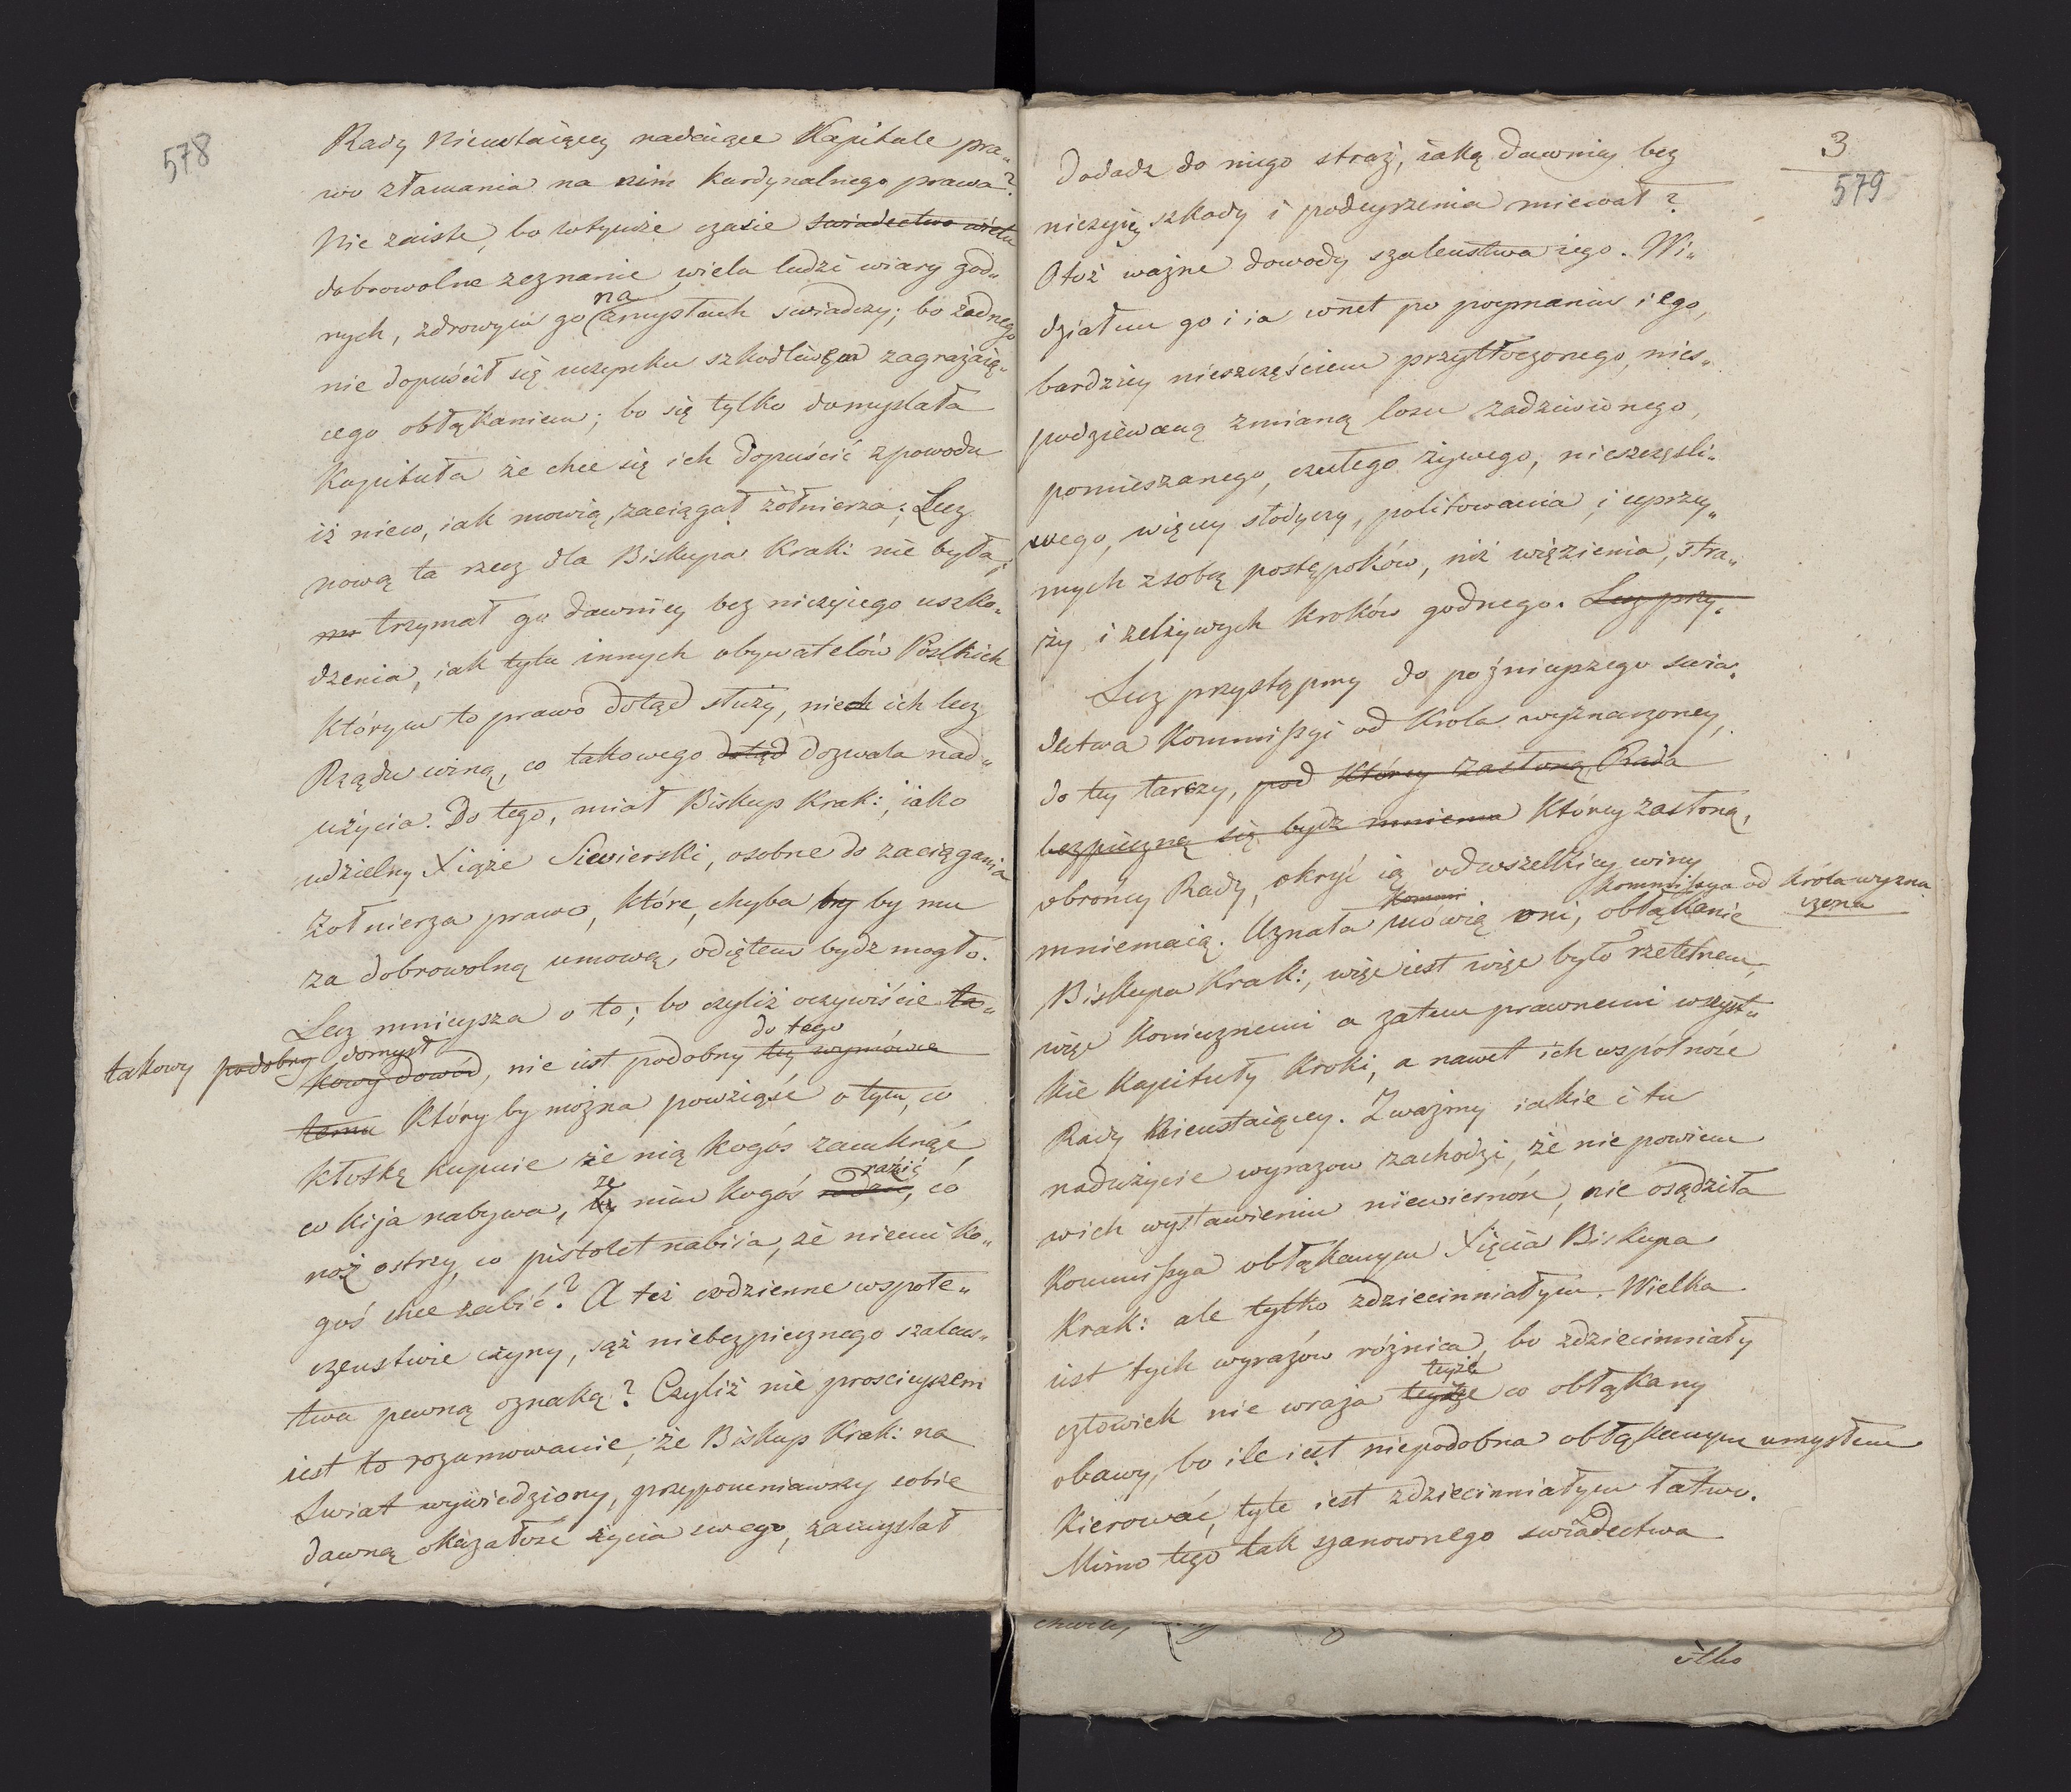 578
Rady Nieustaiącey nadaiące Kapitule pra„
wo złamania na nim kardynalnego prawa?
Nie zaiste, bo wtymże czasie swiadectwo wielu
dobrowolne zeznanie wiela ludzi wiary god„
nych, zdrowym go na zmysłach swiadczy; bo żadnego
nie dopuścił się uczynku szkodliwem zagrażaią„
cego obłąkaniem; bo się tylko domyslała
Kapituła że chce się ich dopuścić z powodu
iż niew, iak mowią, zaciągał żołnierza; Lecz
nową ta rzecz dla Biskupa Krak: nie była,
trzymał go dawniey bez niczyiego uszko„
dzenia, iak tylu innych obywatelów Polskich
którym to prawo dotąd służy, nie ich lecz
Rządu winą, co takowego dotąd dozwala nad„
użycia. Do tego, miał Biskup Krak:, iako
udzielny Xiąże Siewierski, osobne do zaciągania
żołnierza prawo, które, chyba by by mu
za dobrowolną umową, odiętem bydz mogło.
Lecz mnieysza o to; bo czyliż oczywiście ta„
takowy podobny domysł
kowy dowód, nie iest podobny do tego tey wymówce
temu który by można powziąść o tym, co
kłotkę kupuie że nią kogóś zamknąć,
co kija nabywa, że nim kogóś razić, co
noż ostrzy, co pistolet nabiia, że niemi ko„
goś chce zabić? A też codzienne wspołe„
czenstwie czyny, sąż niebezpiecznego szaleńs„
twa pewną oznaką? Czyliż nie prosciejszem
iest to rozumowanie, że Biskup Krak: na
Swiat wywiedziony, przypomniawszy sobie
dawną okazałość życia swego, zamyslał
3
579
dodadz do niego straż, iaką dawniey bez
niczyiey szkody i podeyrzenia miewał?
Otoż ważne dowody szaleństwa iego. Wi„
działem go i ia wnet po poymaniu iego,
bardziey nieszczęściem przytłoczonego, nies„
podziewaną zmianą losu zadziwionego,
pomieszanego, czułego żywego, nieszczęsli„
wego, więcey słodyczy, politowania, i uprzey„
mych z sobą postępoków, niż więzienia, stra„
ży i zelżywych kroków godnego. Lecz przy„
Lecz przystąpmy do poźnieyszego swia„
dectwa Kommissyi od Krola wyznaczoney,
do tey tarczy, pod którey zasłoną Rada
bezpieczną się bydz mniema którey zasłoną,
obrońcy Rady, okryć ią odwszelkiey winy
Kommi Kommissya od króla wyzna
czona
mniemaią. Uznała mówią oni, obłąkanie
Biskupa Krak:, więc iest więc było rzetelnem,
więc koniecznemi a zatem prawnemi wszyst„
kie Kapituły kroki, a nawet ich wspólność
Rady Nieustaiącey. Zważmy iakie i tu
nadużycie wyrazow zachodzi, że nie powiem
wich wystawieniu niewierność, nie osądziła
Kommissya obłąkanym Xięcia Biskupa
Krak: ale tylko zdziecinniałym. Wielka
iest tych wyrazów różnica, bo zdziecinniały
człowiek nie wraża teyże teyże co obłąkany
obawy, bo ile iest niepodobna obłąkanym umysłem
kierować, tyle iest zdziecinniałym łatwo.
Mimo tego tak szanownego swiadectwa